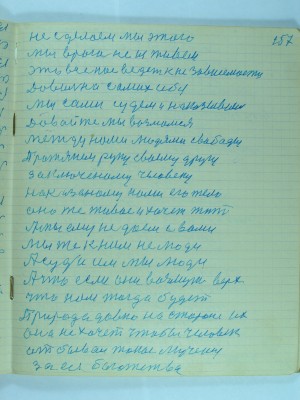 не сделаем мы этого
157
мы врага не наживаем
это все поведет к не зависемости
мы сами судем и наказиваем
давайте мы возмемся
между нами людями свабоды
Протянем руку своему другу
заключоному человеку
наказаному нами его тело
оно же живое и хочет
А мы ему не даем с вами
мы же к ним не люди
А судем мы люди
А что если они возмут верх
что нам тогда будет
Природа давно на стороне их
она не хочет чтобы человек
отбывал такое мучение
за